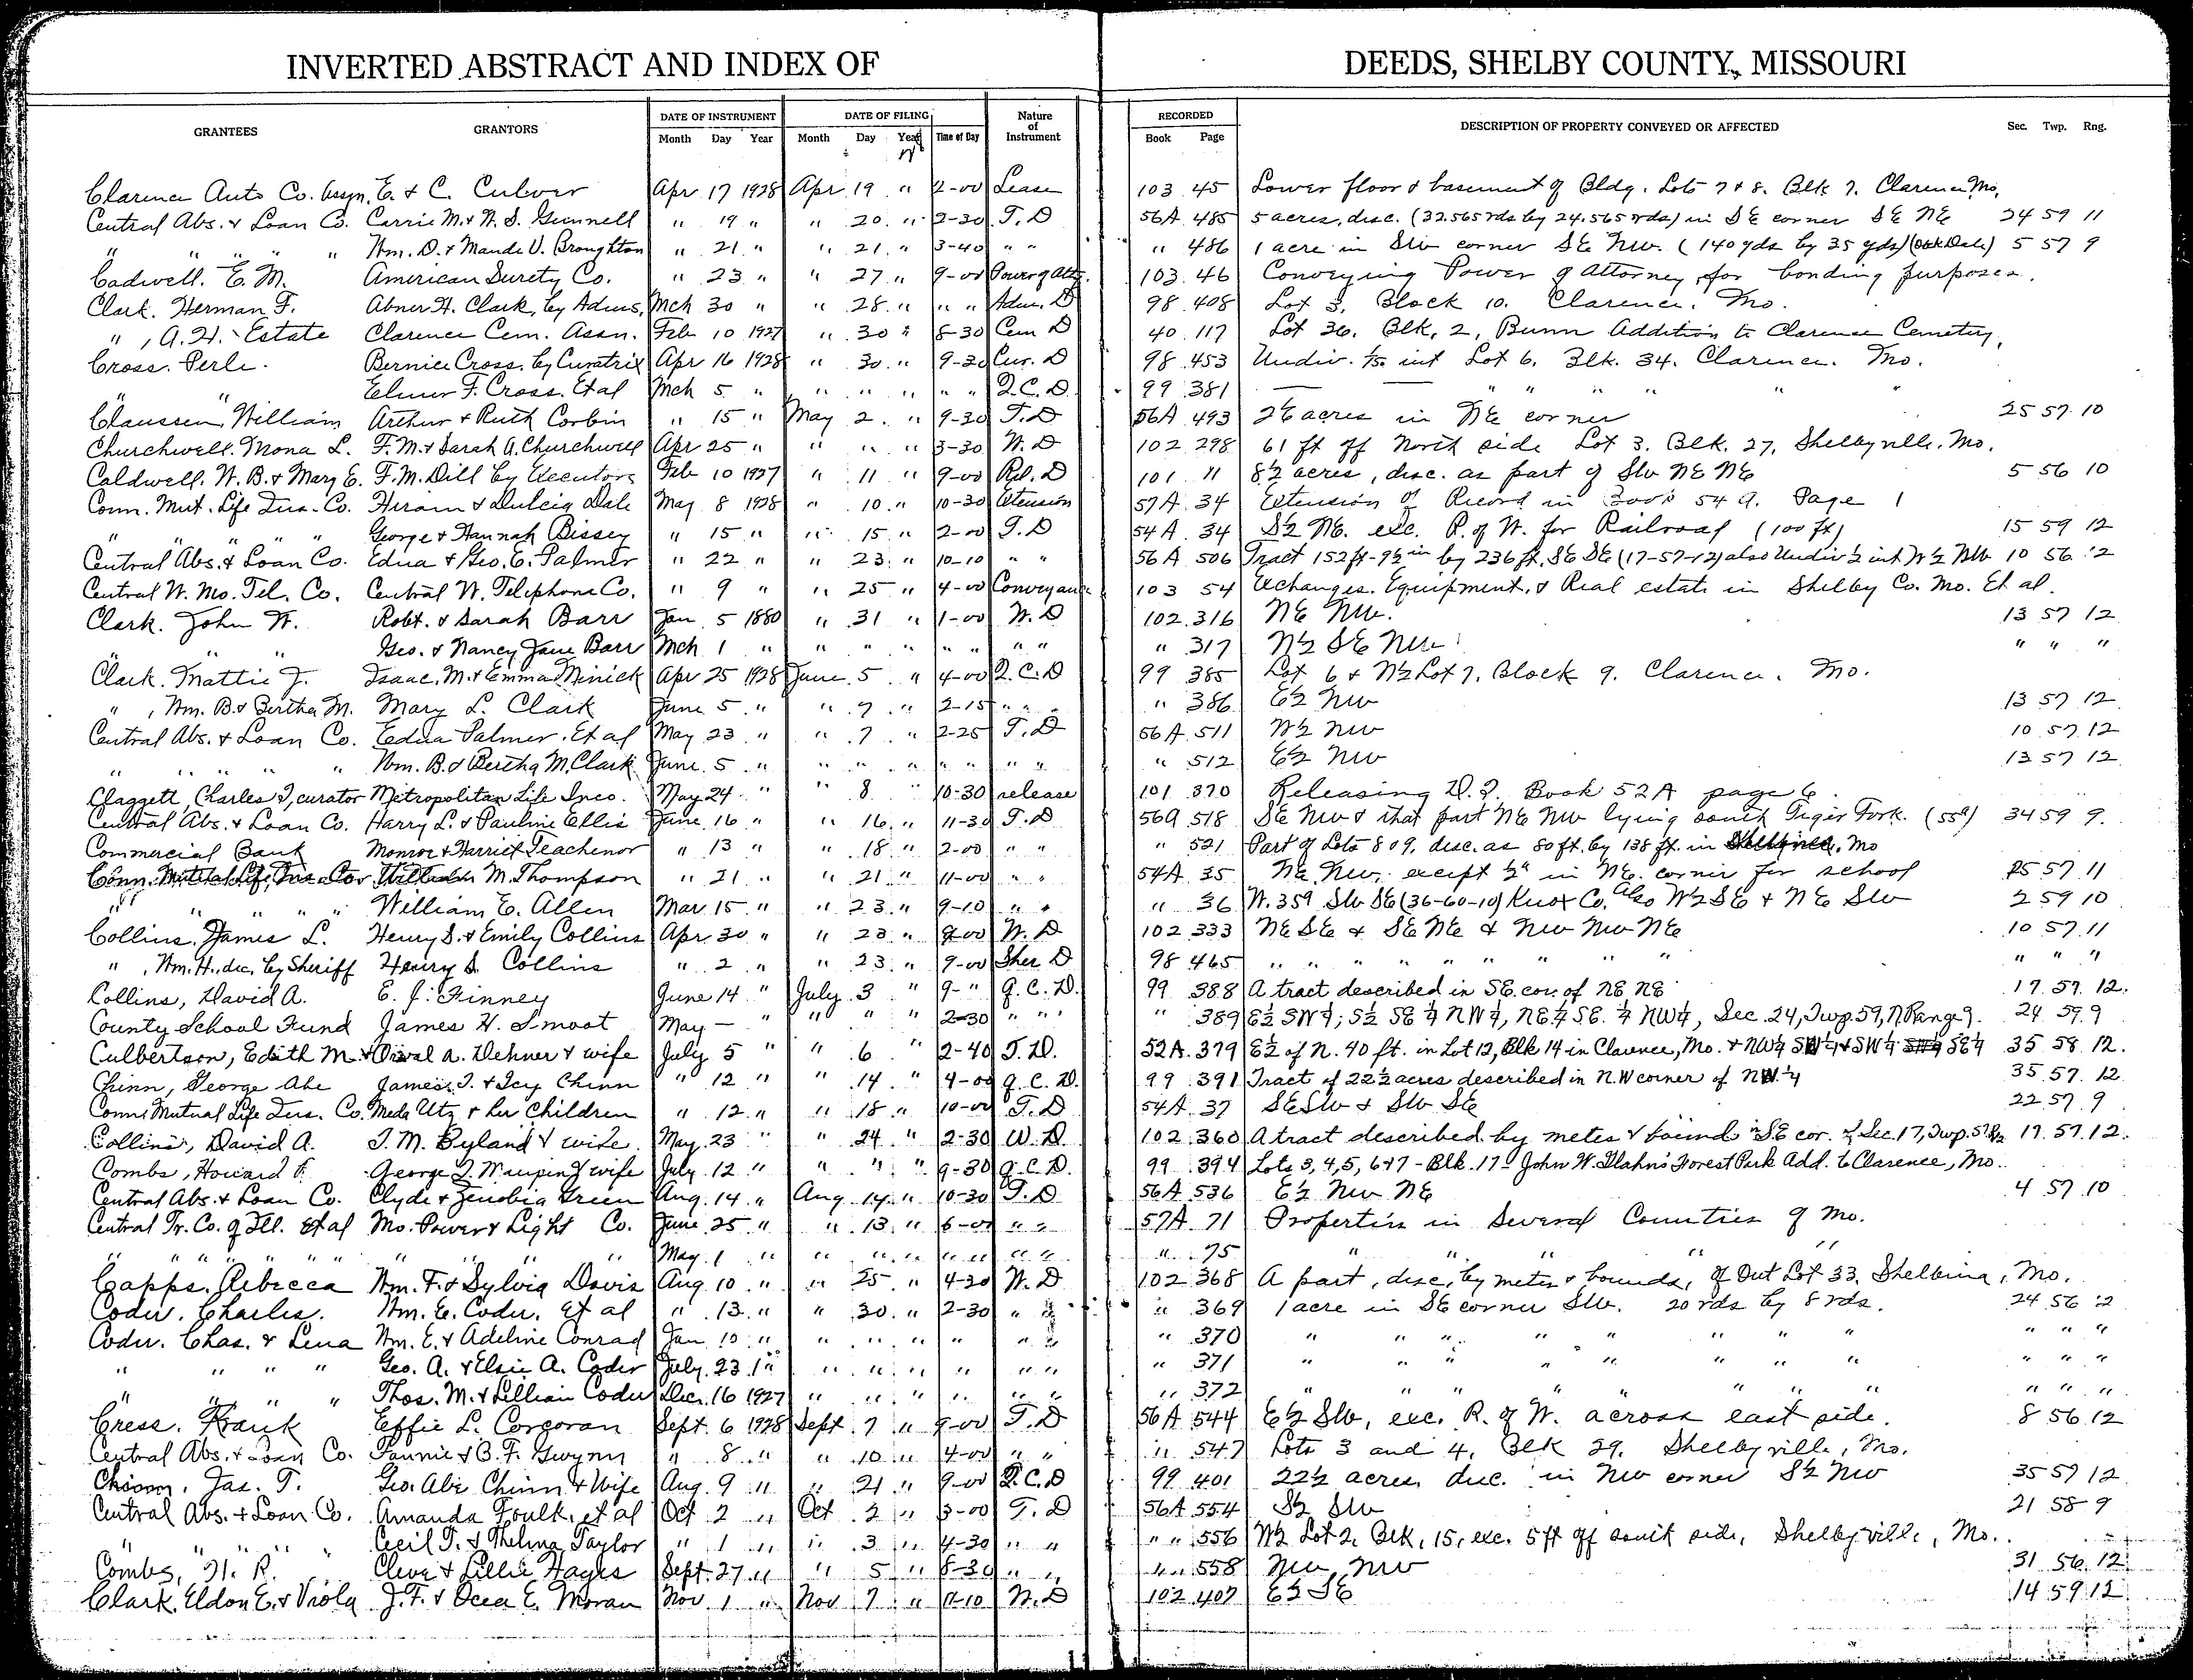 INVERTED ABSTRACT AND INDEX OF DEEDS, SHELBY COUNTY, MISSOURI
GRANTEES GRANTORS DATE OF INSTRUMENT Month Day Year DATE OF FILING Month Day Year Time of Day Nature of Instrument RECORDED Book Page DESCRIPTION OF PROPERTY CONVEYED OR AFFECTED Sec. Twp. Rng.
Clarence Auto Co. Assgn. E. & C. Culver Apr 17 1928 Apr 19 " 2-00 Lease 103 45 Lower floor & basement of Bldg. Lots 7 & 8. Blk 7. Clarence Mo.
Central Abs. & Loan Co. Carrie M. & W. S. Gunnell " 19 " " 20 " 2-30 T. D 56A 485 5 acres, desc. (32.565 rds by 24.565 rds) in SE corner SE NE 24 59 11
" " " " Wm. D. & Maude V. Broughton " 21 " " 21 " 3-40 " " " 486 1 acre in SW corner SE NW. (140 yds by 35 yds) 5 57 9
Cadwell. E. M. American Surety Co. " 23 " " 27 " 9-00 Power of Atty. 103 46 Conveying Power of Attorney for bonding purposes.
Clark. Herman F. Abner H. Clark, by Adms, Mch 30 " " 28 " " " Adm. D 98 408 Lot 3, Block 10. Clarence. Mo.
" , A. H. Estate Clarence Cem. Assn. Feb 10 1927 " 30 " 8-30 Cem D 40 117 Lot 36. Blk. 2, Bunn Addition to Clarence Cemetery,
Cross. Perle. Bernice Cross. by Curatrix Apr 16 1928 " 30 " 9-30 Cur. D 98 453 Undiv. 1/5 int Lot 6. Blk. 34. Clarence. Mo.
" Elmer F. Cross. Et al Mch 5 " " " " " " Q. C. D 99 381 — — " " " " " "
Claussen, William Arthur & Ruth Corbin " 15 " May 2 " 9-30 T. D 56A 493 26 acres in NE corner 25 57 10
Churchwell. Mona L. F. M. & Sarah A. Churchwell Apr 25 " " " " 3-30 W. D 102 298 61 ft off North side Lot 3. Blk. 27, Shelbyville, Mo.
Caldwell. W. B. & Mary E. F. M. Dill by Executors Feb 10 1927 " 11 " 9-00 Rel. D 101 11 8½ acres, desc. as part of SW NE NE 5 56 10
Conn. Mut. Life Ins. Co. Hiram & Dulcia Dale May 8 1928 " 10 " 10-30 Extension 57A 34 Extension of Record in Book 54 A. Page 1
" " " " George & Hannah Bissey " 15 " " 15 " 2-00 T. D 54A 34 S½ NE. exc. R. of W. for Railroad (100 ft) 15 59 12
Central Abs. & Loan Co. Edna & Geo. E. Palmer " 22 " " 23 " 10-10 " " 56A 506 Tract 152 ft-9½ in by 236 ft. SE SE (17-57-12) also Undiv ½ int W½ NW 10 56 12
Central W. Mo. Tel. Co. Central W. Telephone Co. " 9 " " 25 " 4-00 Conveyance 103 54 Exchanges. Equipment. & Real estate in Shelby Co. Mo. Et al.
Clark. John W. Robt. & Sarah Barr Jan 5 1880 " 31 " 1-00 W. D 102 316 NE NW. 13 57 12
" " " Geo. & Nancy Jane Barr Mch 1 " " " " " " " " " 317 N½ SE NW " " "
Clark. Mattie J. Isaac. M. & Emma Minick Apr 25 1928 June 5 " 4-00 Q. C. D 99 385 Lot 6 & N½ Lot 7. Block 9. Clarence. Mo.
" , Wm. B. & Bertha M. Mary L. Clark June 5 " " 7 " 2-15 " " " " 386 E½ NW 13 57 12
Central Abs. & Loan Co. Edna Palmer. Et al May 23 " " 7 " 2-25 T. D 56A 511 W½ NW 10 57 12
" " " " " Wm. B. & Bertha M. Clark June 5 " " " " " " " " " 512 E½ NW 13 57 12
Claggett, Charles I, curator Metropolitan Life Insco. May 24 " " 8 " 10-30 release 101 370 Releasing D. T. Book 52A page 6
Central Abs. & Loan Co. Harry L. & Pauline Ellis June 16 " " 16 " 11-30 T. D 56A 518 SE NW & that part NE NW lying south Tiger Fork. (55a) 34 59 9.
Commercial Bank Monroe & Harriet Teachenor " 13 " " 18 " 2-00 " " " 521 Part of Lots 8 & 9. desc. as 80 ft. by 138 ft. in Shelbina, Mo
Conn. Mutual Life Ins. Co. William M. Thompson " 21 " " 21 " 11-00 " " 54A 35 NE NW. except ½a in NE. corner for school 25 57 11
" " " " " William E. Allen Mar 15 " " 23 " 9-10 " " " 36 W. 35a SW SE (36-60-10) Knox Co. Also W½ SE & NE SW 2 59 10
Collins. James L. Henry S. & Emily Collins Apr 30 " " 23 " 9-00 W. D 102 333 NE SE & SE NE & NW NW NE 10 57 11
" , Wm. H., dec, by Sheriff Henry S. Collins " 2 " " 23 " 9-00 Sher D 98 465 " " " " " " " " " " " "
Collins, David A. E. J. Finney June 14 " July 3 " 9-" Q. C. D. 99 388 A tract described in SE. cor. of NE NE 17. 57. 12.
County School Fund James H. Smoot May — " " " " 2-30 " " " " 389 E½ SW¼; S½ SE¼ NW¼, NE¼ SE. ¼ NW¼, Sec. 24, Twp. 59, N Range 9. 24 59. 9
Culbertson, Edith M. & Orval A. Dehner & wife July 5 " " 6 " 2-40 T. D. 52A. 379 E½ of N. 40 ft. in Lot 12, Blk 14 in Clarence, Mo. & NW¼ SW¼ & SW¼ SE¼ 35 58 12.
Chinn, George Abe James T. & Icy Chinn " 12 " " 14 " 4-00 Q. C. D. 99 391 Tract of 22½ acres described in N. W corner of NW ¼ 35. 57. 12
Conn. Mutual Life Ins. Co. Meda Utz & her children " 12 " " 18 " 10-00 T. D 54A. 37 SE SW & SW SE 22 57 9
Collins, David A. T. M. Byland & wife May 23 " " 24 " 2-30 W. D. 102 360 A tract described by metes & bounds in SE cor. of Sec. 17, Twp. 57 R12 17. 57. 12.
Combs, Howard F. George T. Waupin & wife July 12 " " " " 9-30 Q. C. D. 99 394 Lots 3, 4, 5, 6 & 7 - Blk. 17 - John W. Glahn's Forest Park Add. to Clarence, Mo.
Central Abs. & Loan Co. Clyde & Zenobia Green Aug. 14 " Aug 14 " 10-30 T. D 56A 536 E½ NW NE 4 57 10
Central Tr. Co. of Ill. Et al Mo. Power & Light Co. June 25 " " 13 " 6-00 " " 57A. 71 Properties in Several Counties of Mo.
" " " " " " " " " " May 1 " " " " " " " " " 75 " " " " "
Capps. Rebecca Wm. F. & Sylvia Davis Aug 10 " " 25 " 4-30 W. D 102 368 A part, desc. by metes & bounds, of Out Lot 33. Shelbina, Mo.
Coder. Charles. Wm. E. Coder. Et al " 13 " " 30 " 2-30 " " " 369 1 acre in SE corner SW. 20 rds by 8 rds. 24 56 12
Coder. Chas. & Lena Wm. E. & Adeline Conrad Jan 10 " " " " " " " " 370 " " " " " " " " " " "
" " " " Geo. A. & Elsie A. Coder July 23 " " " " " " " " 371 " " " " " " " " " " "
" " " " Thos. M. & Lillian Coder Dec. 16 1927 " " " " " " " 372 " " " " " " " " " " "
Cress. Frank Effie L. Corcoran Sept. 6 1928 Sept. 7 " 9-00 T. D 56A 544 E½ SW, exc. R. of W. across east side. 8 56 12
Central Abs. & Loan Co. Fannie & B. F. Gwynn " 8 " " 10 " 4-00 " " " 547 Lots 3 and 4. Blk 29. Shelbyville, Mo.
Chinn, Jas. T. Geo. Abe Chinn & Wife Aug. 9 " " 21 " 9-00 Q. C. D 99 401 22½ acres, desc. in NW corner S½ NW 35 57 12
Central Abs. & Loan Co. Amanda Foulk, et al Oct 2 " Oct 2 " 3-00 T. D 56A 554 S½ SW 21 58 9
" " " " Cecil T. & Thelma Taylor " 1 " " 3 " 4-30 " " " " 556 W½ Lot 2, Blk, 15, exc. 5 ft off south side, Shelbyville, Mo.
Combs, H. R. Cleve & Lillie Hayes Sept. 27 " " 5 " 8-30 " " " " 558 NW NW 31 56 12
Clark. Eldon E. & Viola J. F. & Ocea E. Moran Nov 1 " Nov 7 " 11-10 W. D 102 407 E½ SE 14 59 12